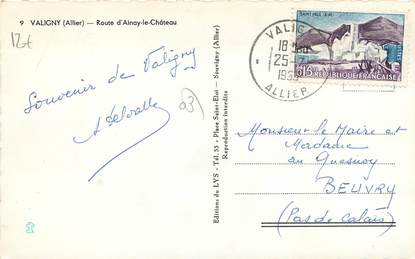 9 VALIGNY (Allier) — Route d'Ainay-le-Château
Souvenir de Valigny
A Delvalle
03
Editions du LYS - Tél. 55 - Place Saint-Eloi - Souvigny (Allier)
Reproduction interdite
VALIGNY
25-7
ALLIER
SAINT-PAUL
0,15
REPUBLIQUE FRANÇAISE
Monsieur le Maire et
Madame
au Quesnoy
BEUVRY
(Pas de Calais)